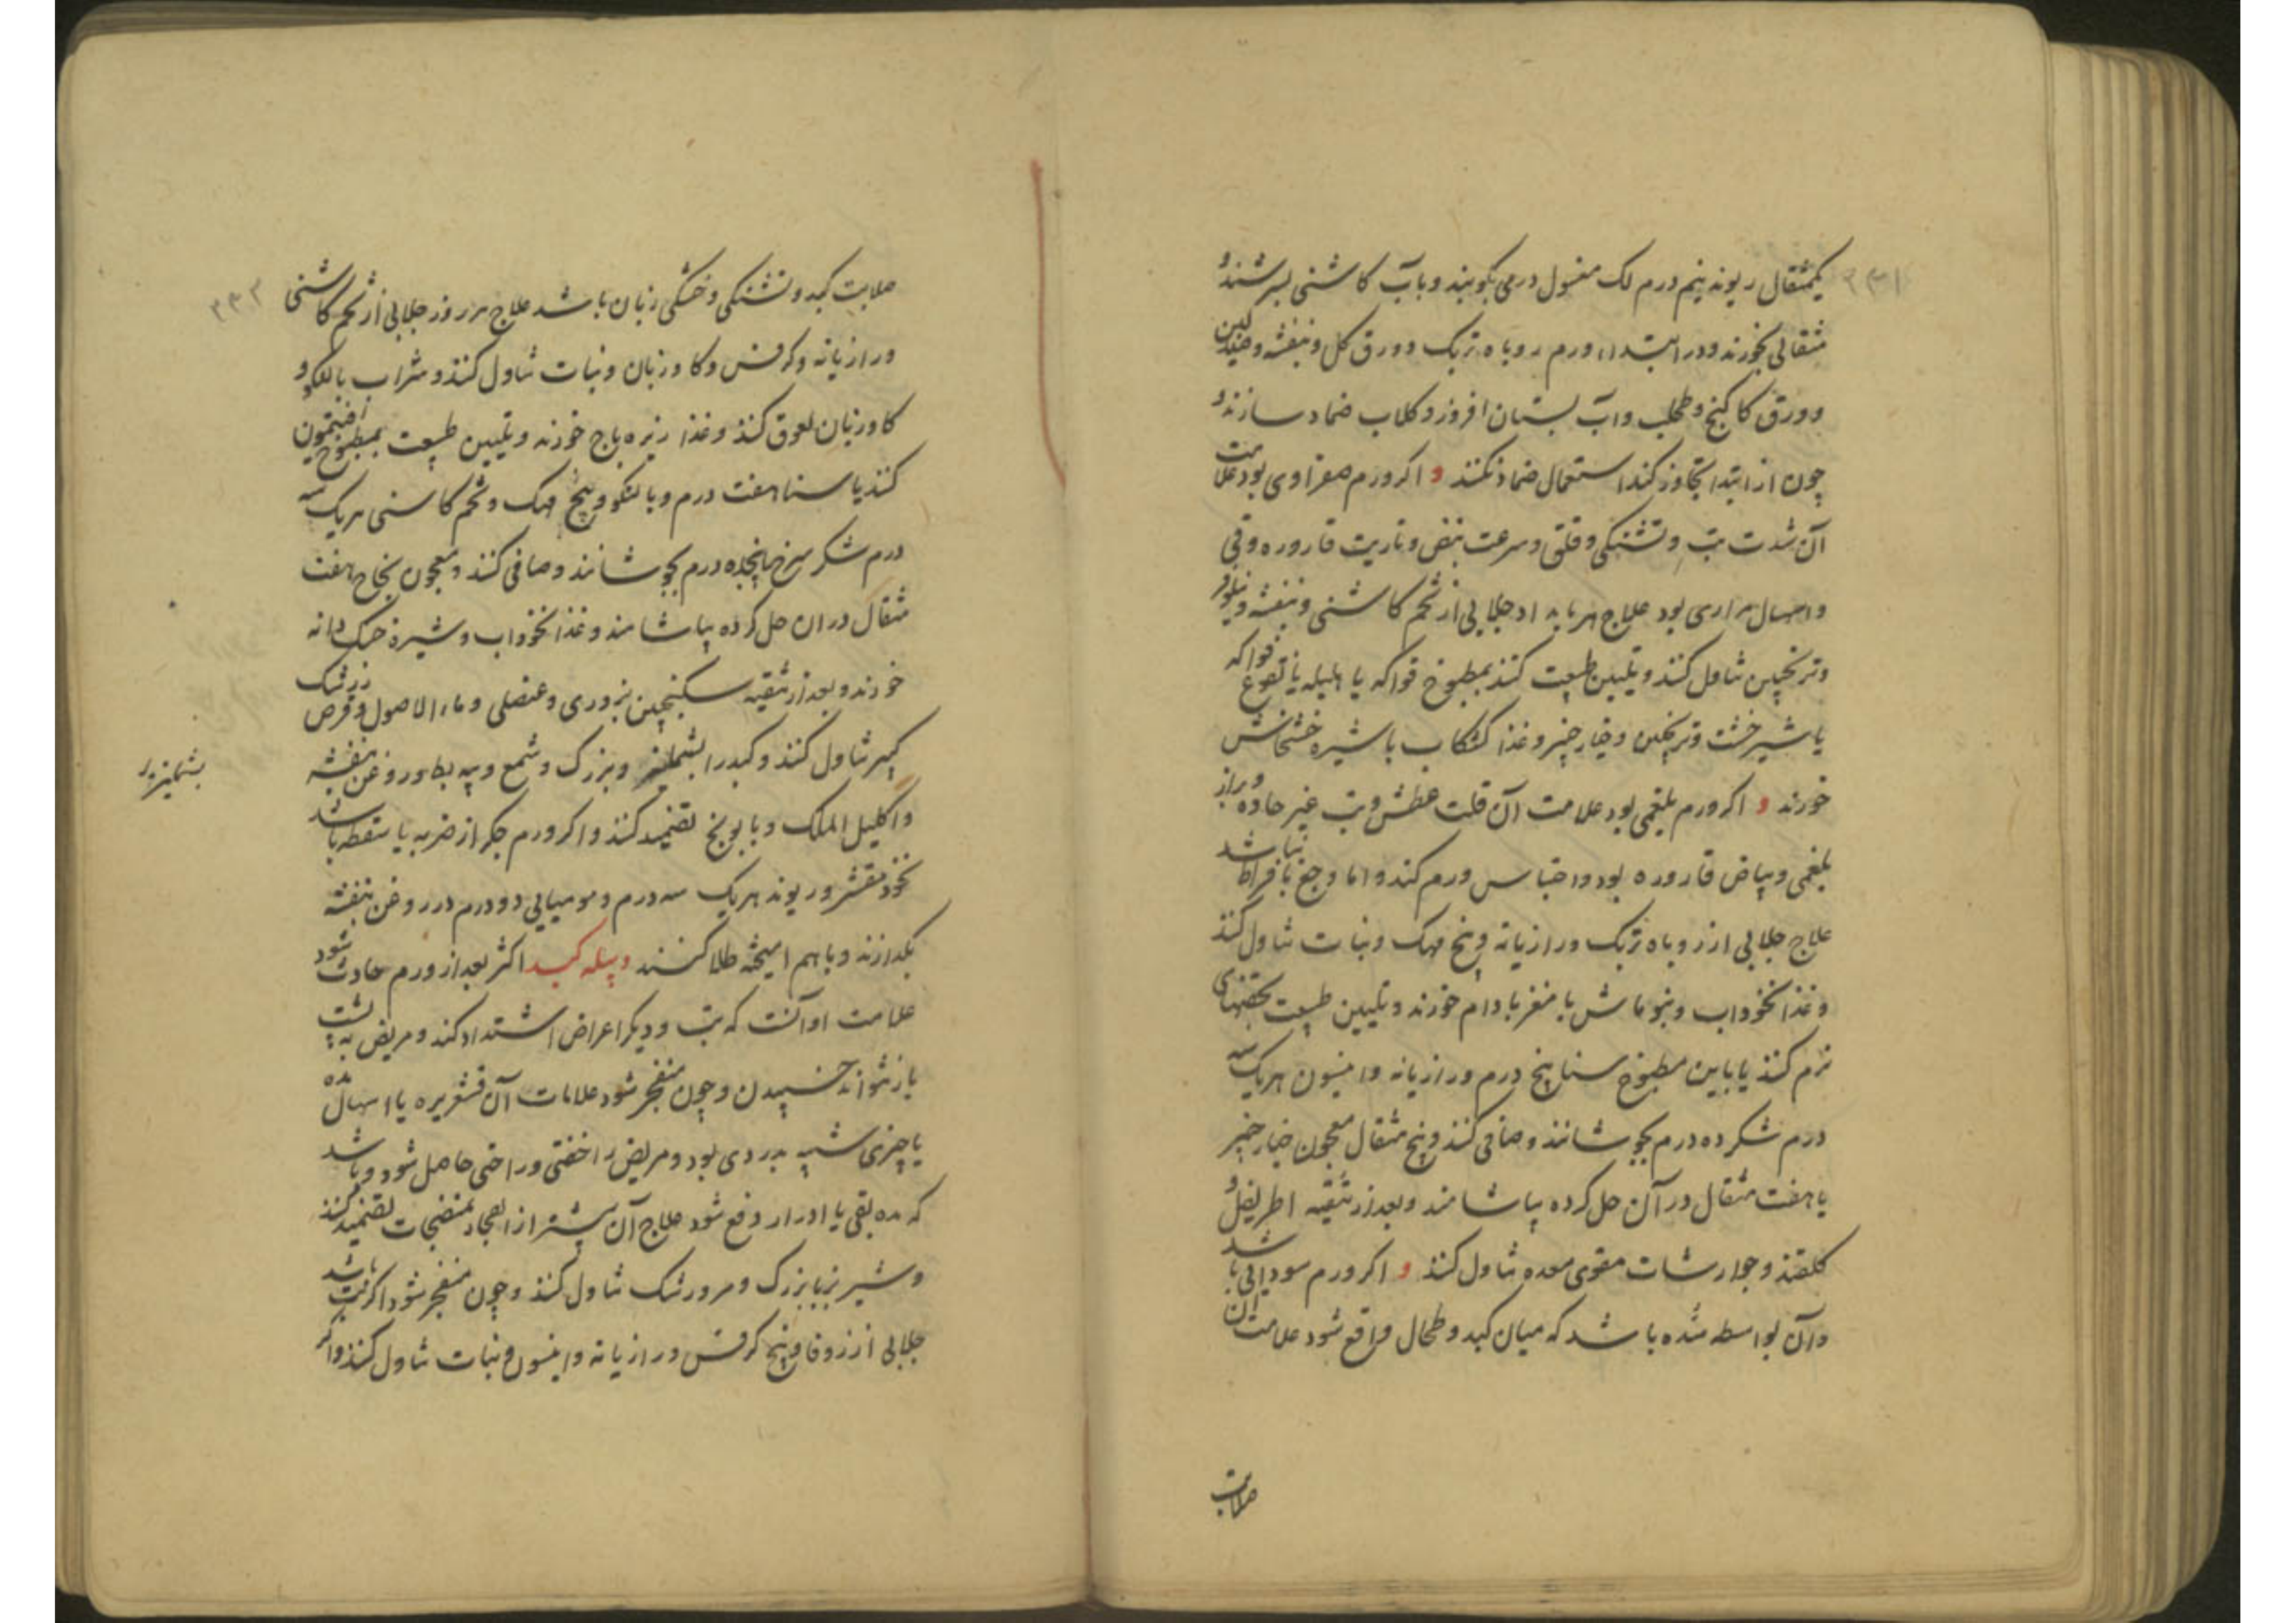 ۳۳۱
یکمثقال ریوند نیم درم لک مغسول درمی بکوبند و بآب کاشنی بسرشند و
مثقالی بخورند و در ابتداء ورم روباه تربک و ورق کل و بنفشه و صندلین
و ورق کاکنج و طحلب و آب بستان افروز و کلاب ضماد سازند و
چون از ابتدا تجاوز کند استعمال ضماد نکنند و اکر ورم صفراوی بود علامت
آن شدت تب و تشنکی و قلق و سرعت نبض و ناریت قاروره و قی
و اسهال مراری بود علاج هر بامداد جلابی از تخم کاشنی و بنفشه و نیلوفر
و ترنجبین تناول کنند و تلیین طبیعت کنند بمطبوخ فواکه یا هلیله یا نقوع فواکه
یا شیرخشت و ترنجبین و خیارچنبر و غذا کشکاب با شیره خشخاش
خورند و اکر ورم بلغمی بود علامت آن قلت عطش و تب غیر حاده و براز
بلغمی و بیاض قاروره بود و احتباس ورم کند و اما وجع بافراط نباشد
علاج جلابی از روباه تربک و رازیانه و بیخ مهک و نبات تناول کنند
و غذا نخوداب و بنوماش با مغز بادام خورند و تلیین طبیعت بحقنهای
نرم کنند یا باین مطبوخ سنا پنج درم و رازیانه و انیسون هریک سه
درم شکر ده درم بجوشانند و صافی کنند و پنج مثقال معجون خیارچنبر
یا هفت مثقال در آن حل کرده بیاشامند و بعد از تنقیه اطریفل و
کلقند و جوارشات مقوی معده تناول کنند و اکر ورم سودایی باشد
و آن بواسطه سُدّه باشد که میان کبد و طحال واقع شود علامت آن
صلابت
۳۳۲
صلابت کبد و تشنکی و خشکی زبان باشد علاج هر روز جلابی از تخم کاشنی
و رازیانه و کرفس و کاوزبان و نبات تناول کنند و شراب بالنکو و
کاوزبان لعوق کنند و غذا زیره باج خورند و تلیین طبیعت بمطبوخ افتیمون
کنند یا سنا هفت درم و بالنکو و بیخ مهک و تخم کاسنی هریک سه
درم شکر سرخ پانجده درم بجوشانند و صافی کنند و معجون نجاح هفت
مثقال در ان حل کرده بیاشامند و غذا نخوداب و شیره خسک دانه
خورند و بعد از تنقیه سکنجبین بزوری و عنصلی و ماء الاصول و قرص زرشک
کبیر تناول کنند و کبد را بشملیز و بزرک و شمع و پیه بط و روغن بنفشه
بشملیز
و اکلیل الملک و بابونج تضمید کنند و اکر ورم جکر از ضربه یا سقطه باشد
نخود مقشر و ریوند هریک سه درم و مومیایی دو درم در روغن بنفشه
بکدازند و با هم امیخته طلا کنند و بیله کبد اکثر بعد از ورم حادث شود
علامت او آنست که تب و دیکر اعراض اشتداد کند و مریض به پشت
باز نتواند خسپیدن و چون منفجر شود علامات آن قشعریره یا اسهال مده
یا چیزی شبیه بدردی بود و مریض را خفتی و راحتی حاصل شود و باشد
که مده بقی یا ادرار دفع شود علاج آن پیشتر از انفجار بمنضجات تضمید کنند
و شیر بز با بزرک و مرورشک تناول کنند و چون منفجر شود اکر تب باشد
جلابی از زوفا و بیخ کرفس و رازیانه و انیسون و نبات تناول کنند و اکر